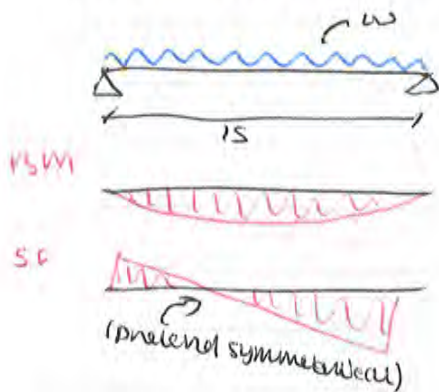 w
15
BM
SF
(pretend symmetrical)